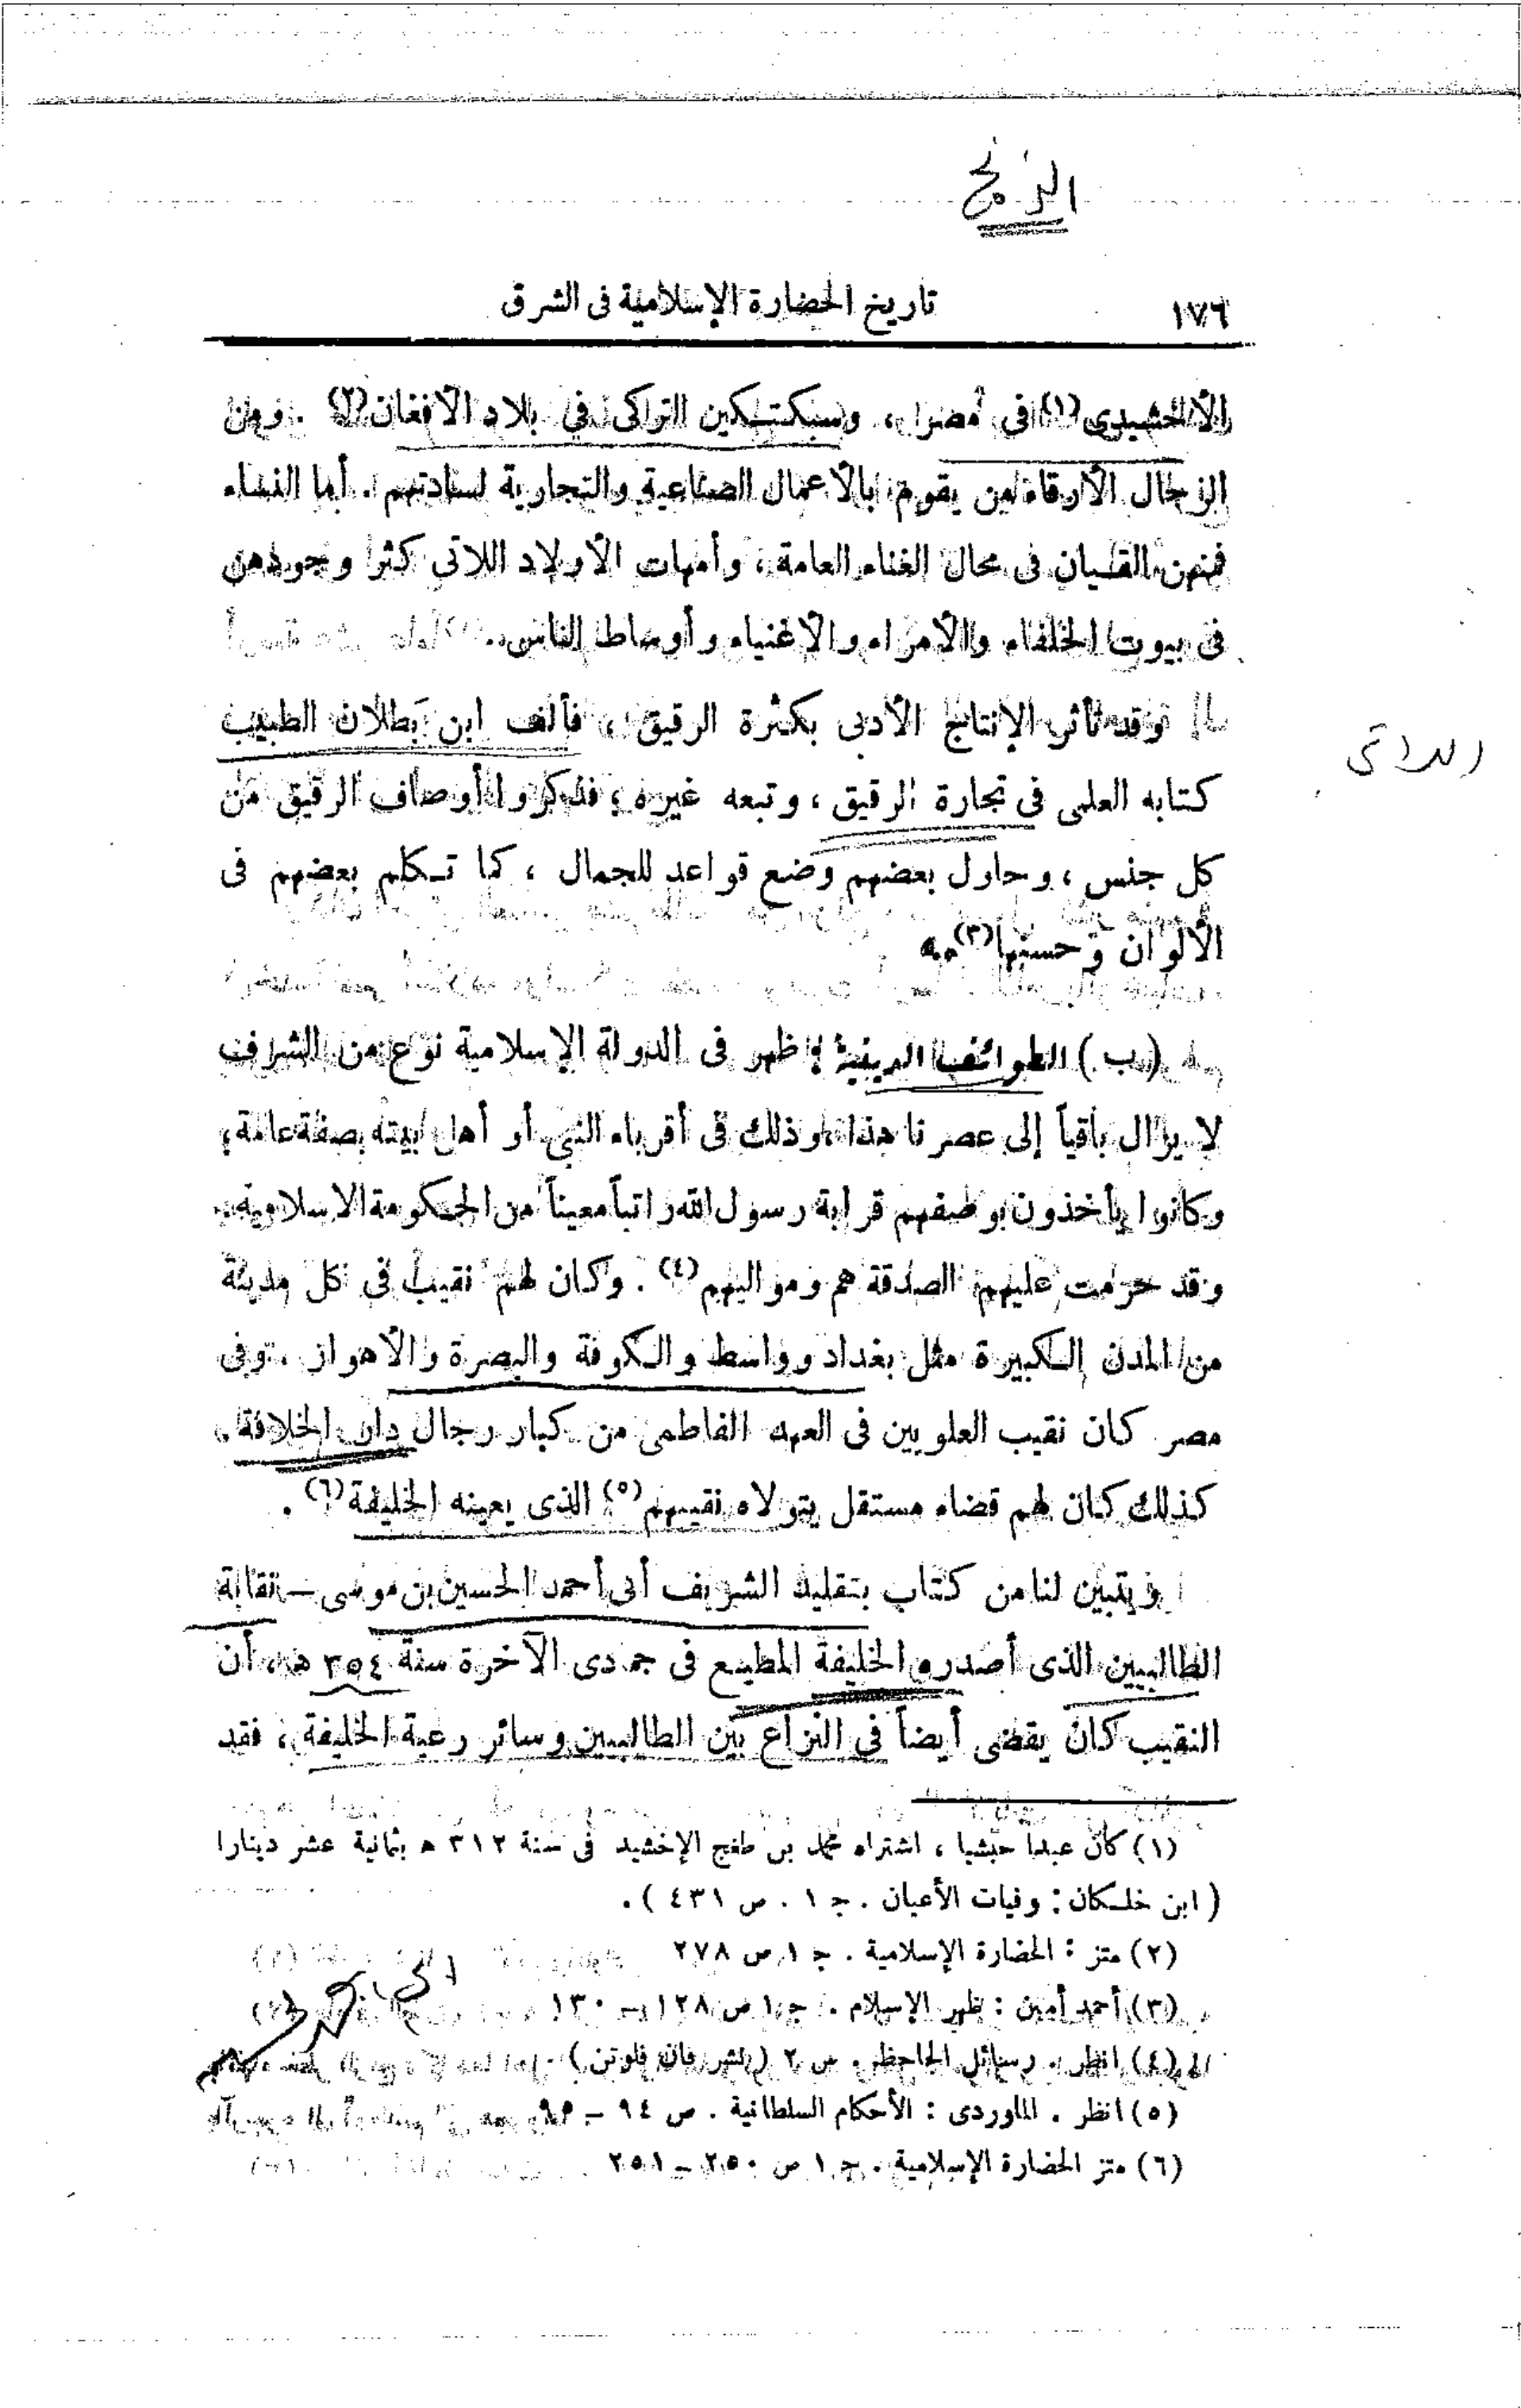 الزنج
١٧٦
تاريخ الحضارة الإسلامية فى الشرق
الأخشيدى(١) فى مصر ، وسبكتكين التركى فى بلاد الأفغان(٢) . ومن
الرجال الأرقاء من يقوم بالأعمال الصناعية والتجارية لسادتهم . أما النساء
فمنهن القيان فى محال الغناء العامة ، وأمهات الأولاد اللاتى كثر وجودهن
فى بيوت الخلفاء والأمراء والأغنياء وأوساط الناس .
وقد تأثر الإنتاج الأدبى بكثرة الرقيق ، فألف ابن بَطلان الطبيب
اللاتى
كتابه العلمى فى تجارة الرقيق ، وتبعه غيره ، فذكروا أوصاف الرقيق من
كل جنس ، وحاول بعضهم وضع قواعد للجمال ، كما تكلم بعضهم فى
الألوان وحسنها(٣) .
(ب) الطوائف الدينية : ظهر فى الدولة الإسلامية نوع من الشرف
لا يزال باقياً إلى عصرنا هذا ، وذلك فى أقرباء النبى أو أهل بيته بصفة عامة ؛
وكانوا يأخذون بوصفهم قرابة رسول الله راتباً معيناً من الحكومة الاسلامية .
وقد حرمت عليهم الصدقة هم ومواليهم(٤) . وكان لهم نقيب فى كل مدينة
من المدن الكبيرة مثل بغداد وواسط والكوفة والبصرة والأهواز . وفى
مصر كان نقيب العلويين فى العهد الفاطمى من كبار رجال دار الخلافة .
كذلك كان لهم قضاء مستقل يتولاه نقيبهم(٥) الذى يعينه الخليفة(٦) .
ويتبين لنا من كتاب بتقليد الشريف أبى أحمد الحسين بن موسى – نقابة
الطالبيين الذى أصدره الخليفة المطيع فى جمادى الآخرة سنة ٣٥٤ هـ ، أن
النقيب كان يقضى أيضاً فى النزاع بين الطالبيين وسائر رعية الخليفة ، فقد
(١) كان عبدا حبشيا ، اشتراه محمد بن طغج الإخشيد فى سنة ٣١٢ هـ بثمانية عشر دينارا
( ابن خلكان : وفيات الأعيان . جـ ١ . ص ٤٣١ ) .
(٢) متز : الحضارة الإسلامية . جـ ١ ص ٢٧٨
(٣) أحمد أمين : ظهر الإسلام . جـ ١ ص ١٢٨ – ١٣٠
(٤) انظر . رسائل الجاحظ . ص ٢ (نشر فان فلوتن)
(٥) انظر . الماوردى : الأحكام السلطانية . ص ٩٤ – ٩٥
(٦) متز الحضارة الإسلامية . جـ ١ ص ٢٥٠ – ٢٥١